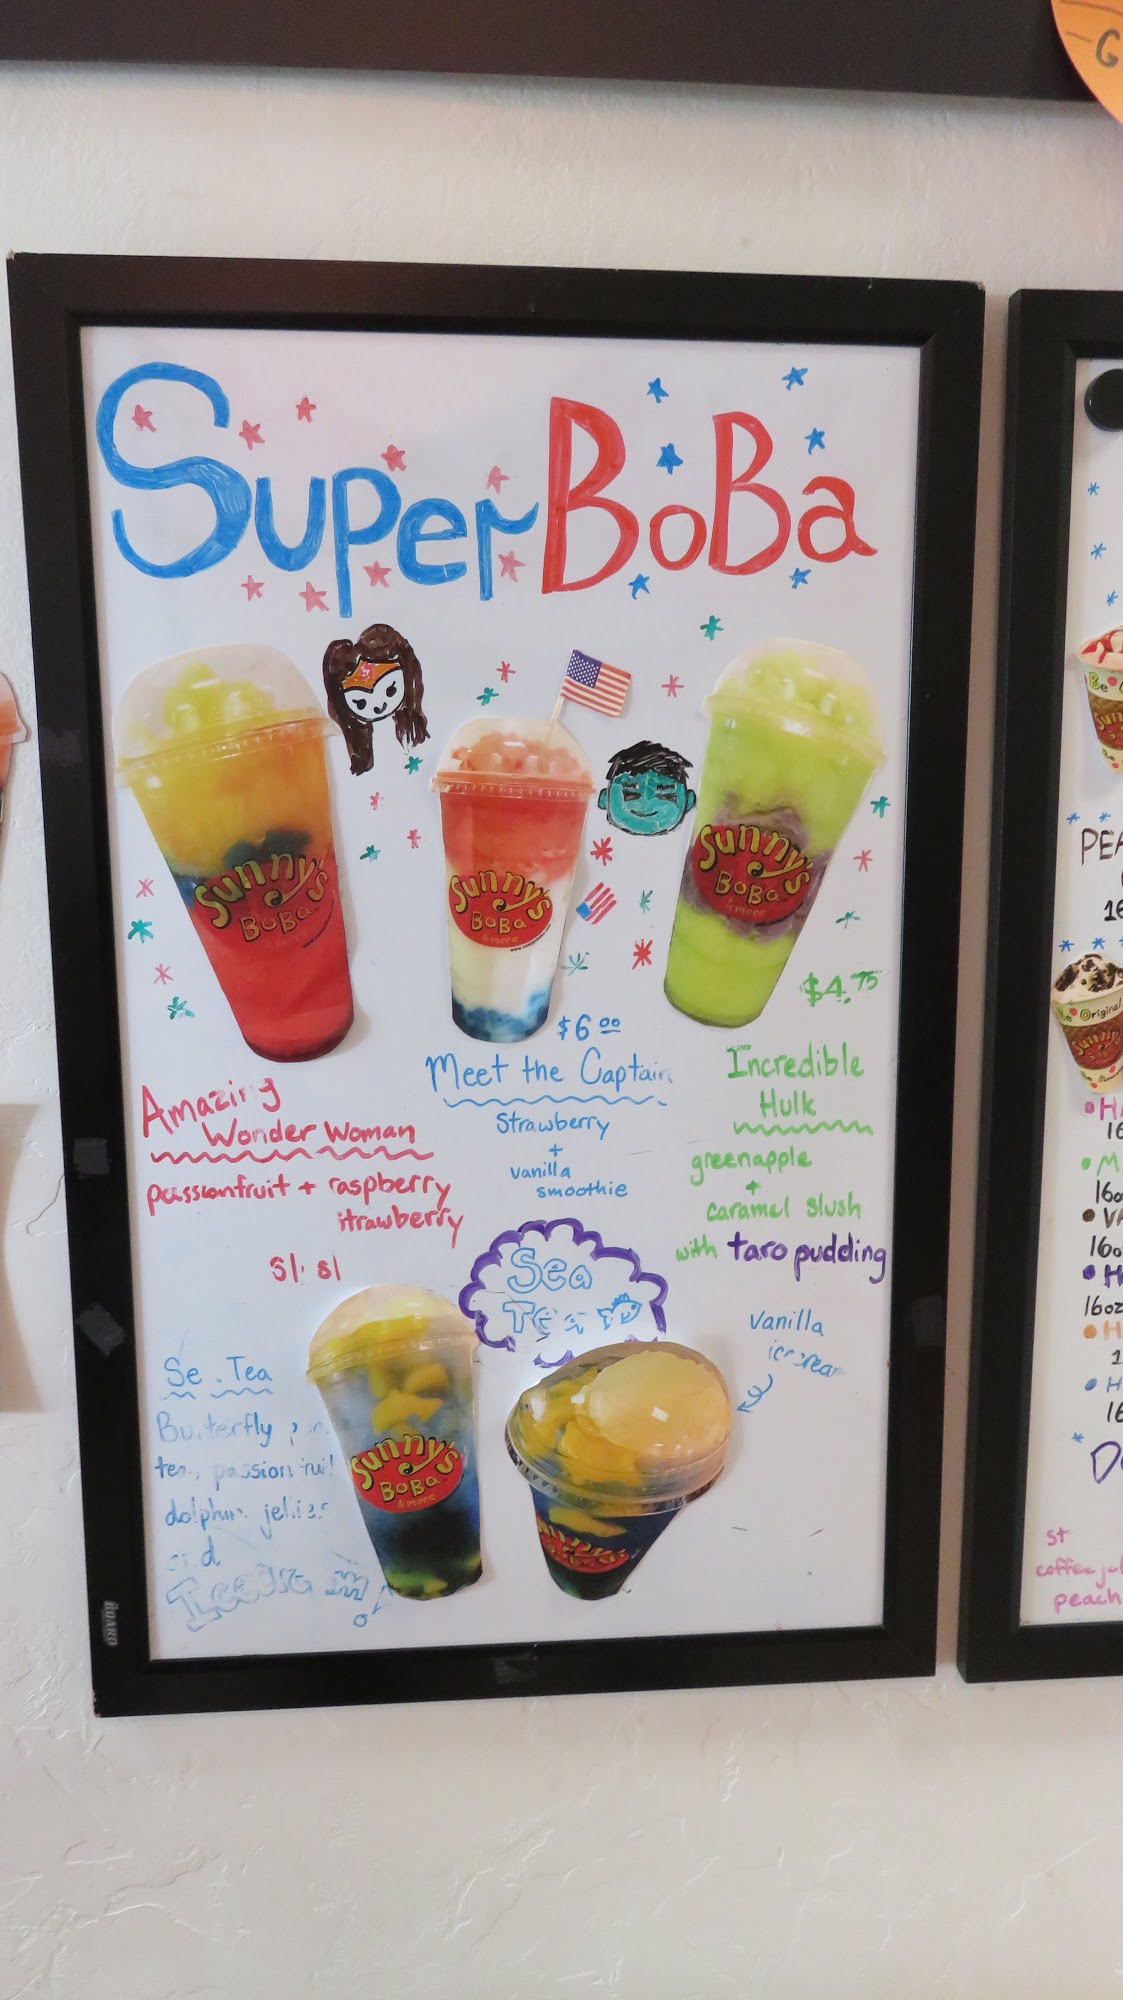 Super BoBa
Sunny's
BoBa
& more
Sunny's
BoBa
& more
Sunny's
BoBa
& more
$4.75
$6.00
Amazing
Wonder Woman
passionfruit + raspberry
strawberry
Meet the Captain
Strawberry
+
vanilla
smoothie
Incredible
Hulk
greenapple
+
caramel slush
with taro pudding
Sea
Tea
Vanilla
icecream
Tea
Butterfly
passion
dolphin jellies
Sunny's
BoBa
& more
BOARD
G
Be
Original
PEA
16
16
16oz
16oz
16oz
1
16
st
coffee
peach